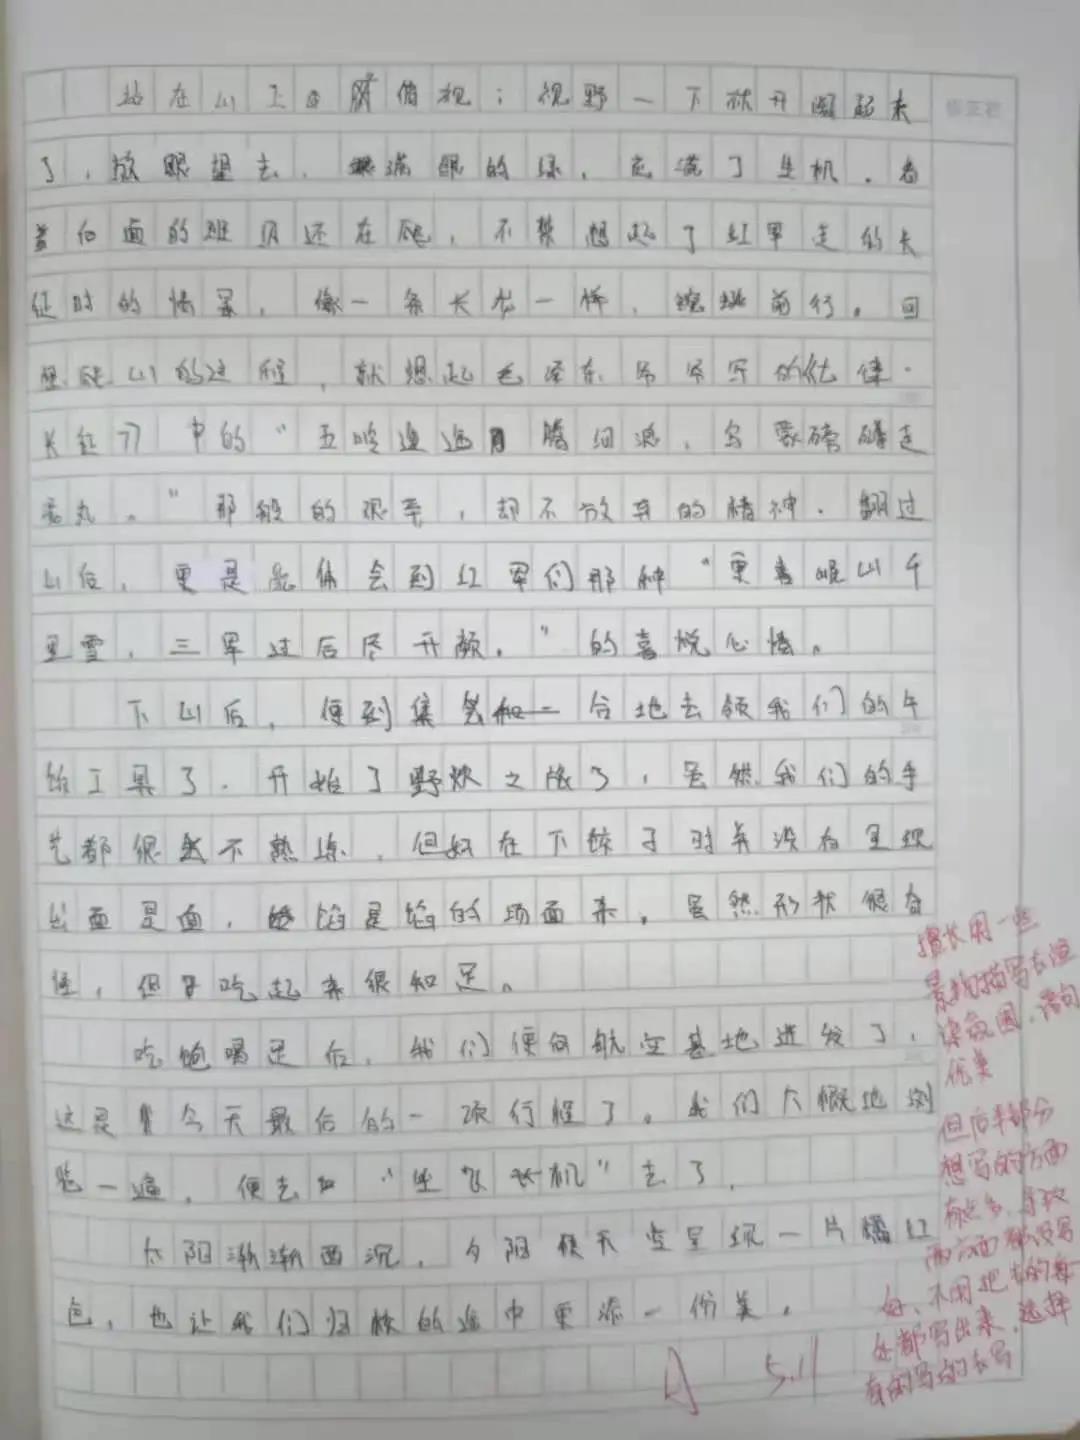 站在山上俯视；视野一下就开阔起来
了，放眼望去，满眼的绿，充满了生机。看
着后面的班级还在爬，不禁想起了红军走的长
征时的情景，像一条长龙一样，蜿蜒前行。回
想爬山的过程，就想起毛泽东所写的《七律·
长征》中的“五岭逶迤腾细浪，乌蒙磅礴走
泥丸。”那般的艰辛，却不放弃的精神。翻过
山后，更是能体会到红军们那种“更喜岷山千
里雪，三军过后尽开颜。”的喜悦心情。
下山后，便到集合地去领我们的午
饭工具了。开始了野炊之旅了，虽然我们的手
艺都很不熟练，但好在下饺子时并没有呈现
出面是面，馅是馅的场面来。虽然形状很奇
怪，但吃起来很知足。
吃饱喝足后，我们便向航空基地进发了，
这是今天最后的一项行程了。我们大概地浏
览一遍，便去“坐飞机”去了。
太阳渐渐西沉，夕阳使天空呈现一片橘红
色，也让我们归校的途中更添一份美。
擅长用一些
景物描写去渲
染氛围，语句
优美
但后半部分
想写的方面
有点多，导致
两方面都没写
好，不用把去的每
处都写出来，选择
有的写的去写
A 5.11